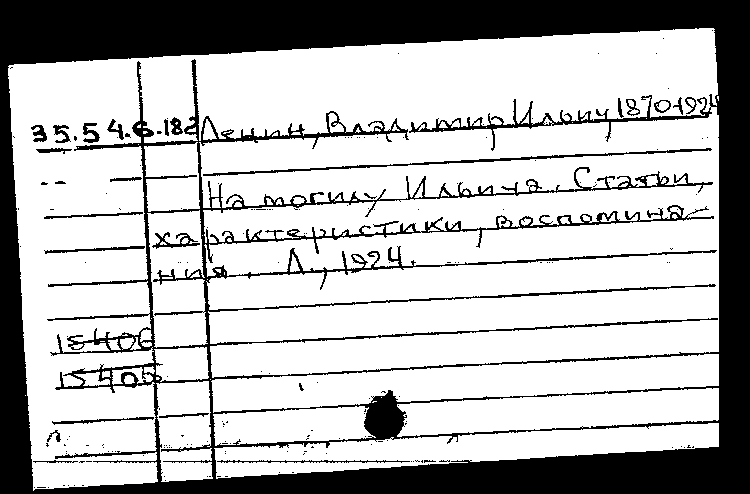 35.54.6.182 Ленин, Владимир Ильич, 1870-1924
На могилу Ильича. Статьи,
характеристики, воспомина-
ния. Л., 1924.
15406
15406